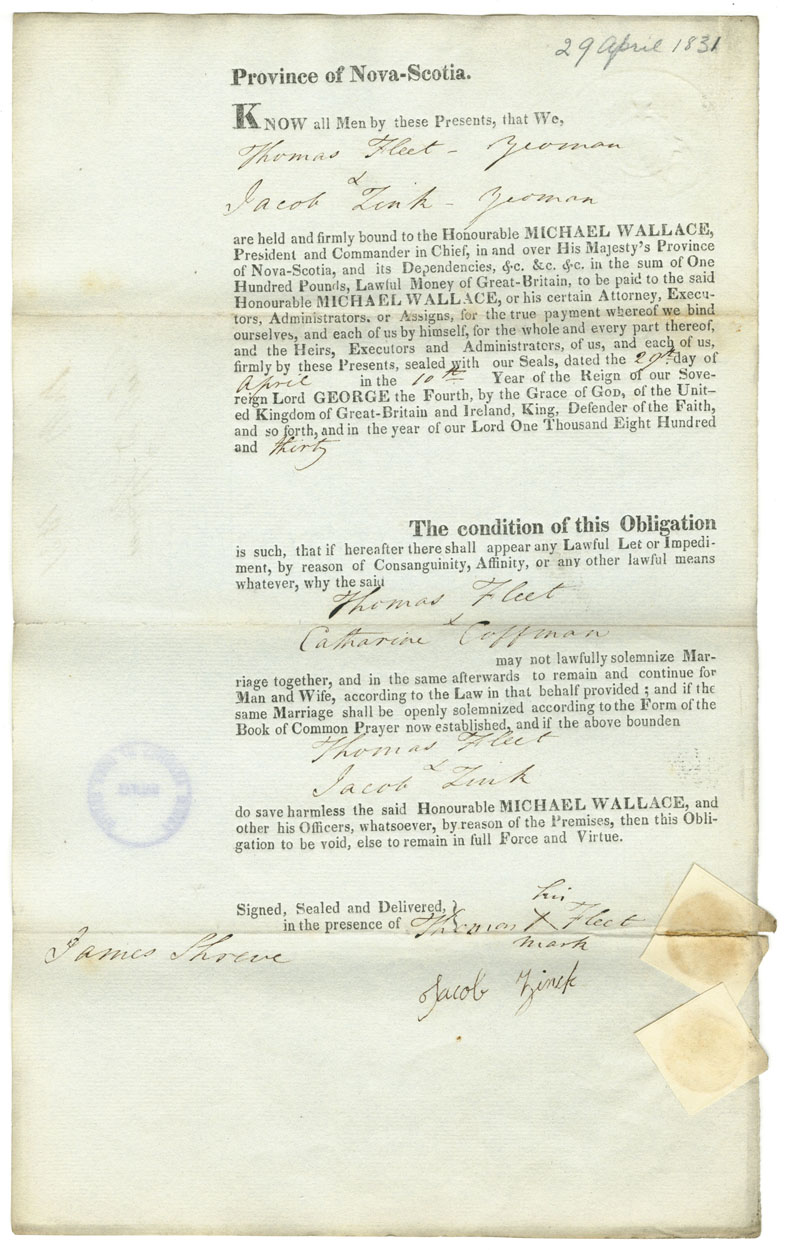 29 April 1831
Province of Nova-Scotia.
KNOW all Men by these Presents, that We,
Thomas Fleet - Yeoman
&
Jacob Zink - Yeoman
are held and firmly bound to the Honourable MICHAEL WALLACE,
President and Commander in Chief, in and over His Majesty's Province
of Nova-Scotia, and its Dependencies, &c. &c. &c. in the sum of One
Hundred Pounds, Lawful Money of Great-Britain, to be paid to the said
Honourable MICHAEL WALLACE, or his certain Attorney, Execu-
tors, Administrators, or Assigns, for the true payment whereof we bind
ourselves, and each of us by himself, for the whole and every part thereof,
and the Heirs, Executors and Administrators, of us, and each of us,
firmly by these Presents, sealed with our Seals, dated the 29th day of
April in the 10th Year of the Reign of our Sove-
reign Lord GEORGE the Fourth, by the Grace of GOD, of the Unit-
ed Kingdom of Great-Britain and Ireland, King, Defender of the Faith,
and so forth, and in the year of our Lord One Thousand Eight Hundred
and thirty
The condition of this Obligation
is such, that if hereafter there shall appear any Lawful Let or Impedi-
ment, by reason of Consanguinity, Affinity, or any other lawful means
whatever, why the said
Thomas Fleet
&
Catharine Coffman
may not lawfully solemnize Mar-
riage together, and in the same afterwards to remain and continue for
Man and Wife, according to the Law in that behalf provided ; and if the
same Marriage shall be openly solemnized according to the Form of the
Book of Common Prayer now established, and if the above bounden
Thomas Fleet
&
Jacob Zink
do save harmless the said Honourable MICHAEL WALLACE, and
other his Officers, whatsoever, by reason of the Premises, then this Obli-
gation to be void, else to remain in full Force and Virtue.
Signed, Sealed and Delivered, }
his
in the presence of Thomas X Fleet
mark
James Shreve
Jacob Zinck